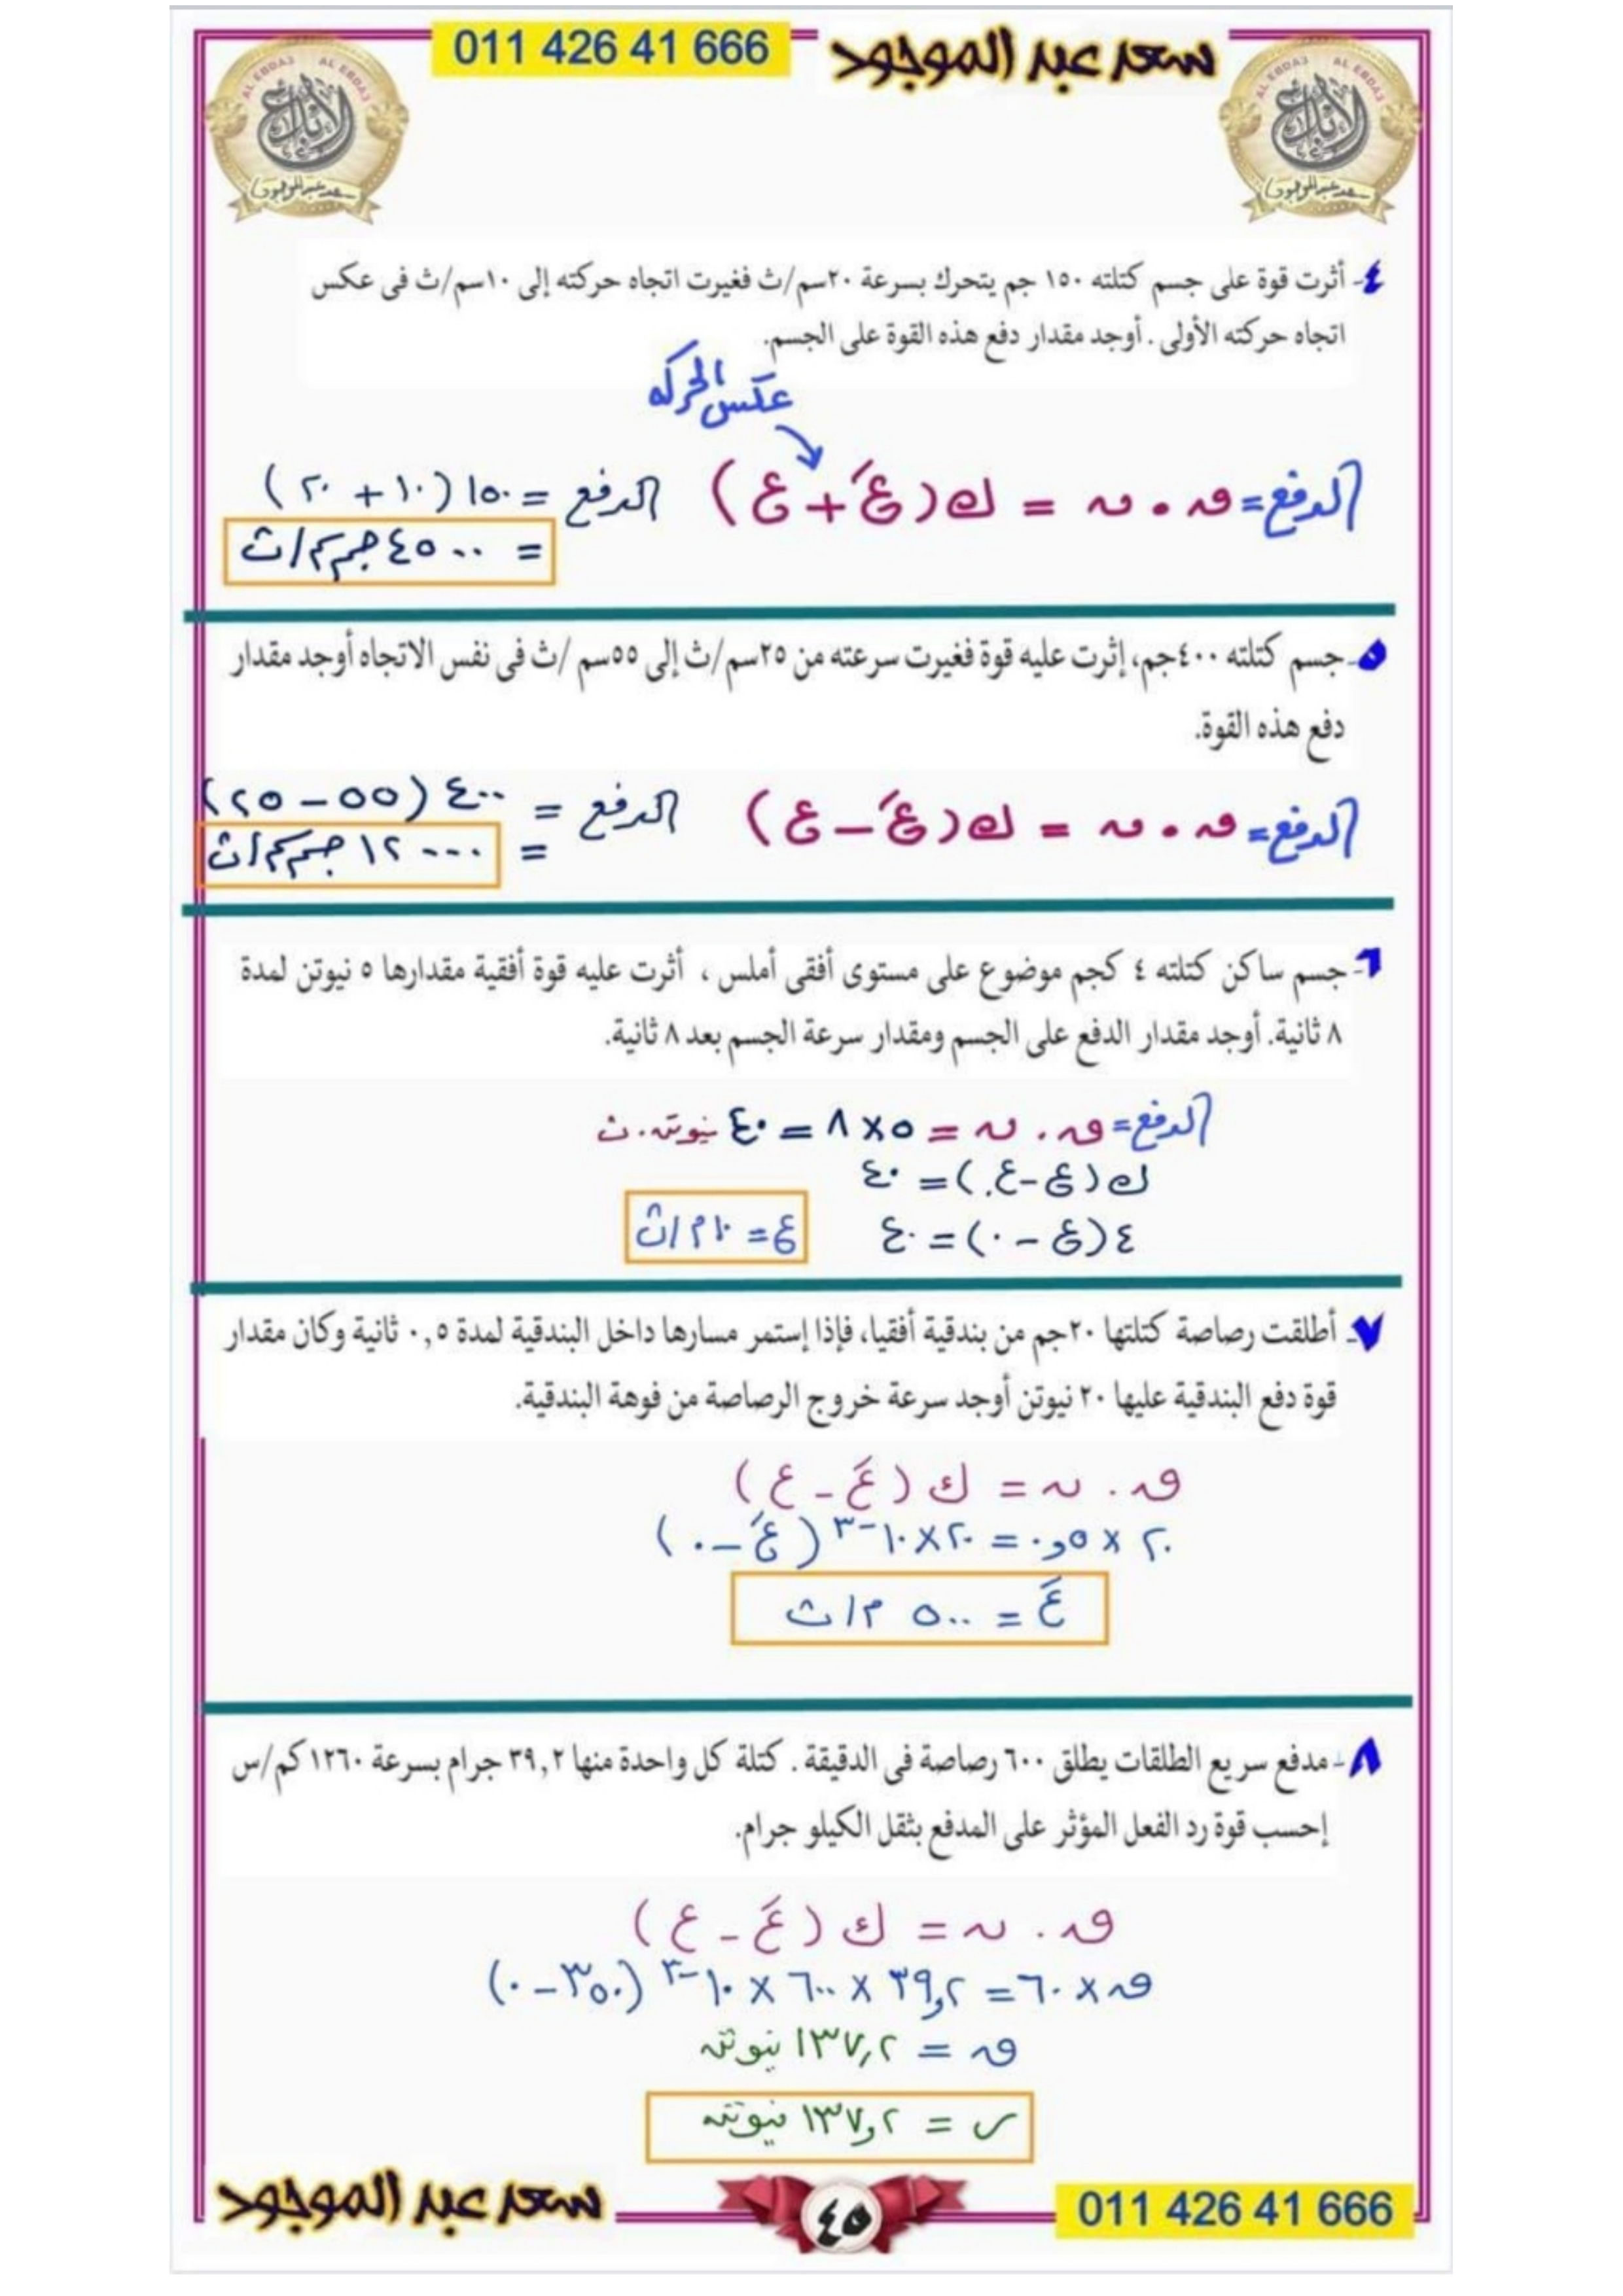 011 426 41 666
سعد عبد الموجود
AL EBDA3 AL EBDA3
الإبداع
سعد عبد الموجود
AL EBDA3 AL EBDA3
الإبداع
سعد عبد الموجود
٤- أثرت قوة على جسم كتلته ١٥٠ جم يتحرك بسرعة ٢٠سم/ث فغيرت اتجاه حركته إلى ١٠سم/ث فى عكس
اتجاه حركته الأولى . أوجد مقدار دفع هذه القوة على الجسم.
عكس الحركه
الدفع = ق . ن = ك (عَ + ع) الدفع = ١٥٠ (١٠ + ٢٠)
= ٤٥٠٠ جم سم/ث
٥- جسم كتلته ٤٠٠جم، إثرت عليه قوة فغيرت سرعته من ٢٥سم/ث إلى ٥٥سم /ث فى نفس الاتجاه أوجد مقدار
دفع هذه القوة.
الدفع = ق . ن = ك (عَ – ع) الدفع = ٤٠٠ (٥٥ – ٢٥)
= ١٢٠٠٠ جم سم/ث
٦- جسم ساكن كتلته ٤ كجم موضوع على مستوى أفقى أملس ، أثرت عليه قوة أفقية مقدارها ٥ نيوتن لمدة
٨ ثانية. أوجد مقدار الدفع على الجسم ومقدار سرعة الجسم بعد ٨ ثانية.
الدفع = ق . ن = ٥ × ٨ = ٤٠ نيوتن . ث
ك (ع – ع.) = ٤٠
٤ (ع – ٠) = ٤٠ ع = ١٠ م/ث
٧- أطلقت رصاصة كتلتها ٢٠جم من بندقية أفقيا، فإذا إستمر مسارها داخل البندقية لمدة ٠,٥ ثانية وكان مقدار
قوة دفع البندقية عليها ٢٠ نيوتن أوجد سرعة خروج الرصاصة من فوهة البندقية.
ق . ن = ك (عَ – ع)
٢٠ × ٠,٥ = ٢٠ × ١٠⁻³ (عَ – ٠)
عَ = ٥٠٠ م/ث
٨- مدفع سريع الطلقات يطلق ٦٠٠ رصاصة فى الدقيقة . كتلة كل واحدة منها ٣٩,٢ جرام بسرعة ١٢٦٠ كم/س
إحسب قوة رد الفعل المؤثر على المدفع بثقل الكيلو جرام.
ق . ن = ك (عَ – ع)
ق × ٦٠ = ٣٩,٢ × ٦٠٠ × ١٠⁻³ (٣٥٠ – ٠)
ق = ١٣٧,٢ نيوتن
ر = ١٣٧,٢ نيوتن
سعد عبد الموجود
٤٥
011 426 41 666